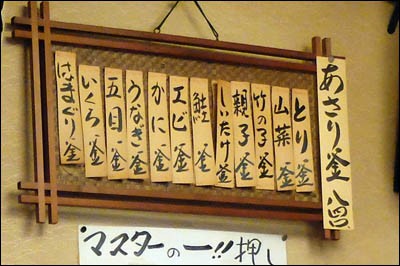 あさり釜 八四〇
とり釜
山菜釜
竹の子釜
親子釜
しいたけ釜
鮭釜
エビ釜
かに釜
うなぎ釜
五目釜
いくら釜
はまぐり釜
マスターの一!!押し